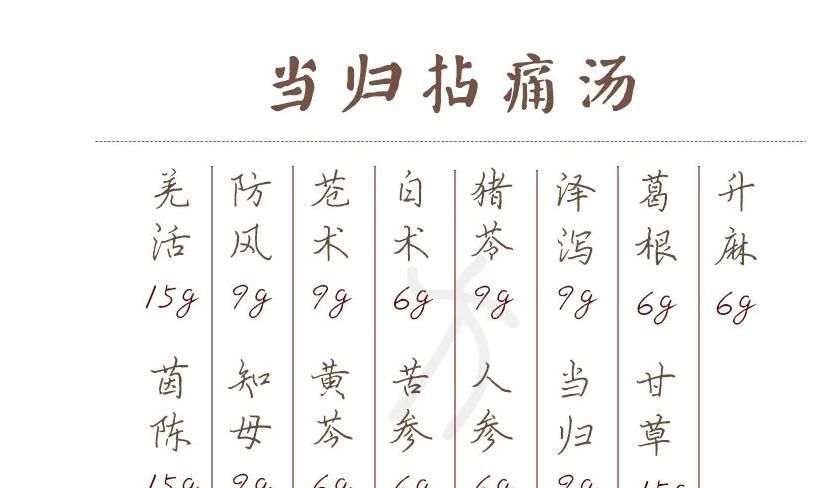 当归拈痛汤
羌活 防风 苍术 白术 猪苓 泽泻 葛根 升麻
15g 9g 9g 6g 9g 9g 6g 6g
茵陈 知母 黄芩 苦参 人参 当归 甘草
15g 9g 6g 6g 6g 9g 15g